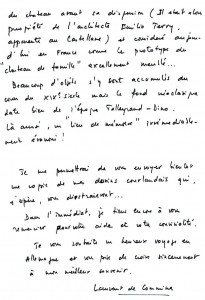 du château avant sa dispersion (Il était alors
propriété de l'architecte Emilio Terry,
apparenté au Castellane) et considéré aujour-
d'hui en France comme le prototype du
"château de famille" excellemment meublé...
Beaucoup d'objets s'y sont accumulés au
cours du XIXe siècle mais le fond
date bien de l'époque Talleyrand - Dino.
Là aussi, un "lieu de mémoire" irrémédiable-
ment évanoui !
Je me permettrai de vous envoyer bientôt
une copie de mes dessins courlandais qui,
j'espère, vous distrairont...
Dans l'immédiat, je tiens encore à vous
remercier pour votre aide et votre convivialité.
Je vous souhaite un heureux voyage en
Allemagne et vous prie de croire sincèrement
à mon meilleur souvenir.
Laurent de Commines